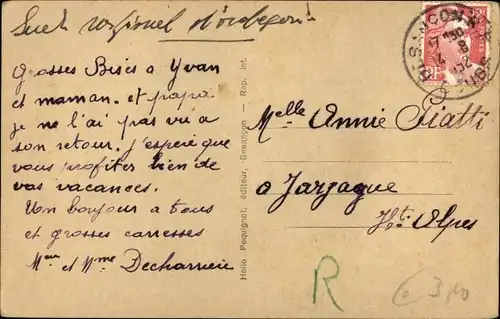 Grosses Bises à Yvan
et maman. et papa
je ne l'ai pas vu a
son retour. j'espère que
vous profitez bien de
vos vacances.
Un bonjour a tous
et grosses caresses
Mr et Mme
Hélio Pequignot, éditeur, Besançon — Rep. int.
BESANÇON
Melle Annie Piatti
a Jarjaque
Htes Alpes
R
€ 3